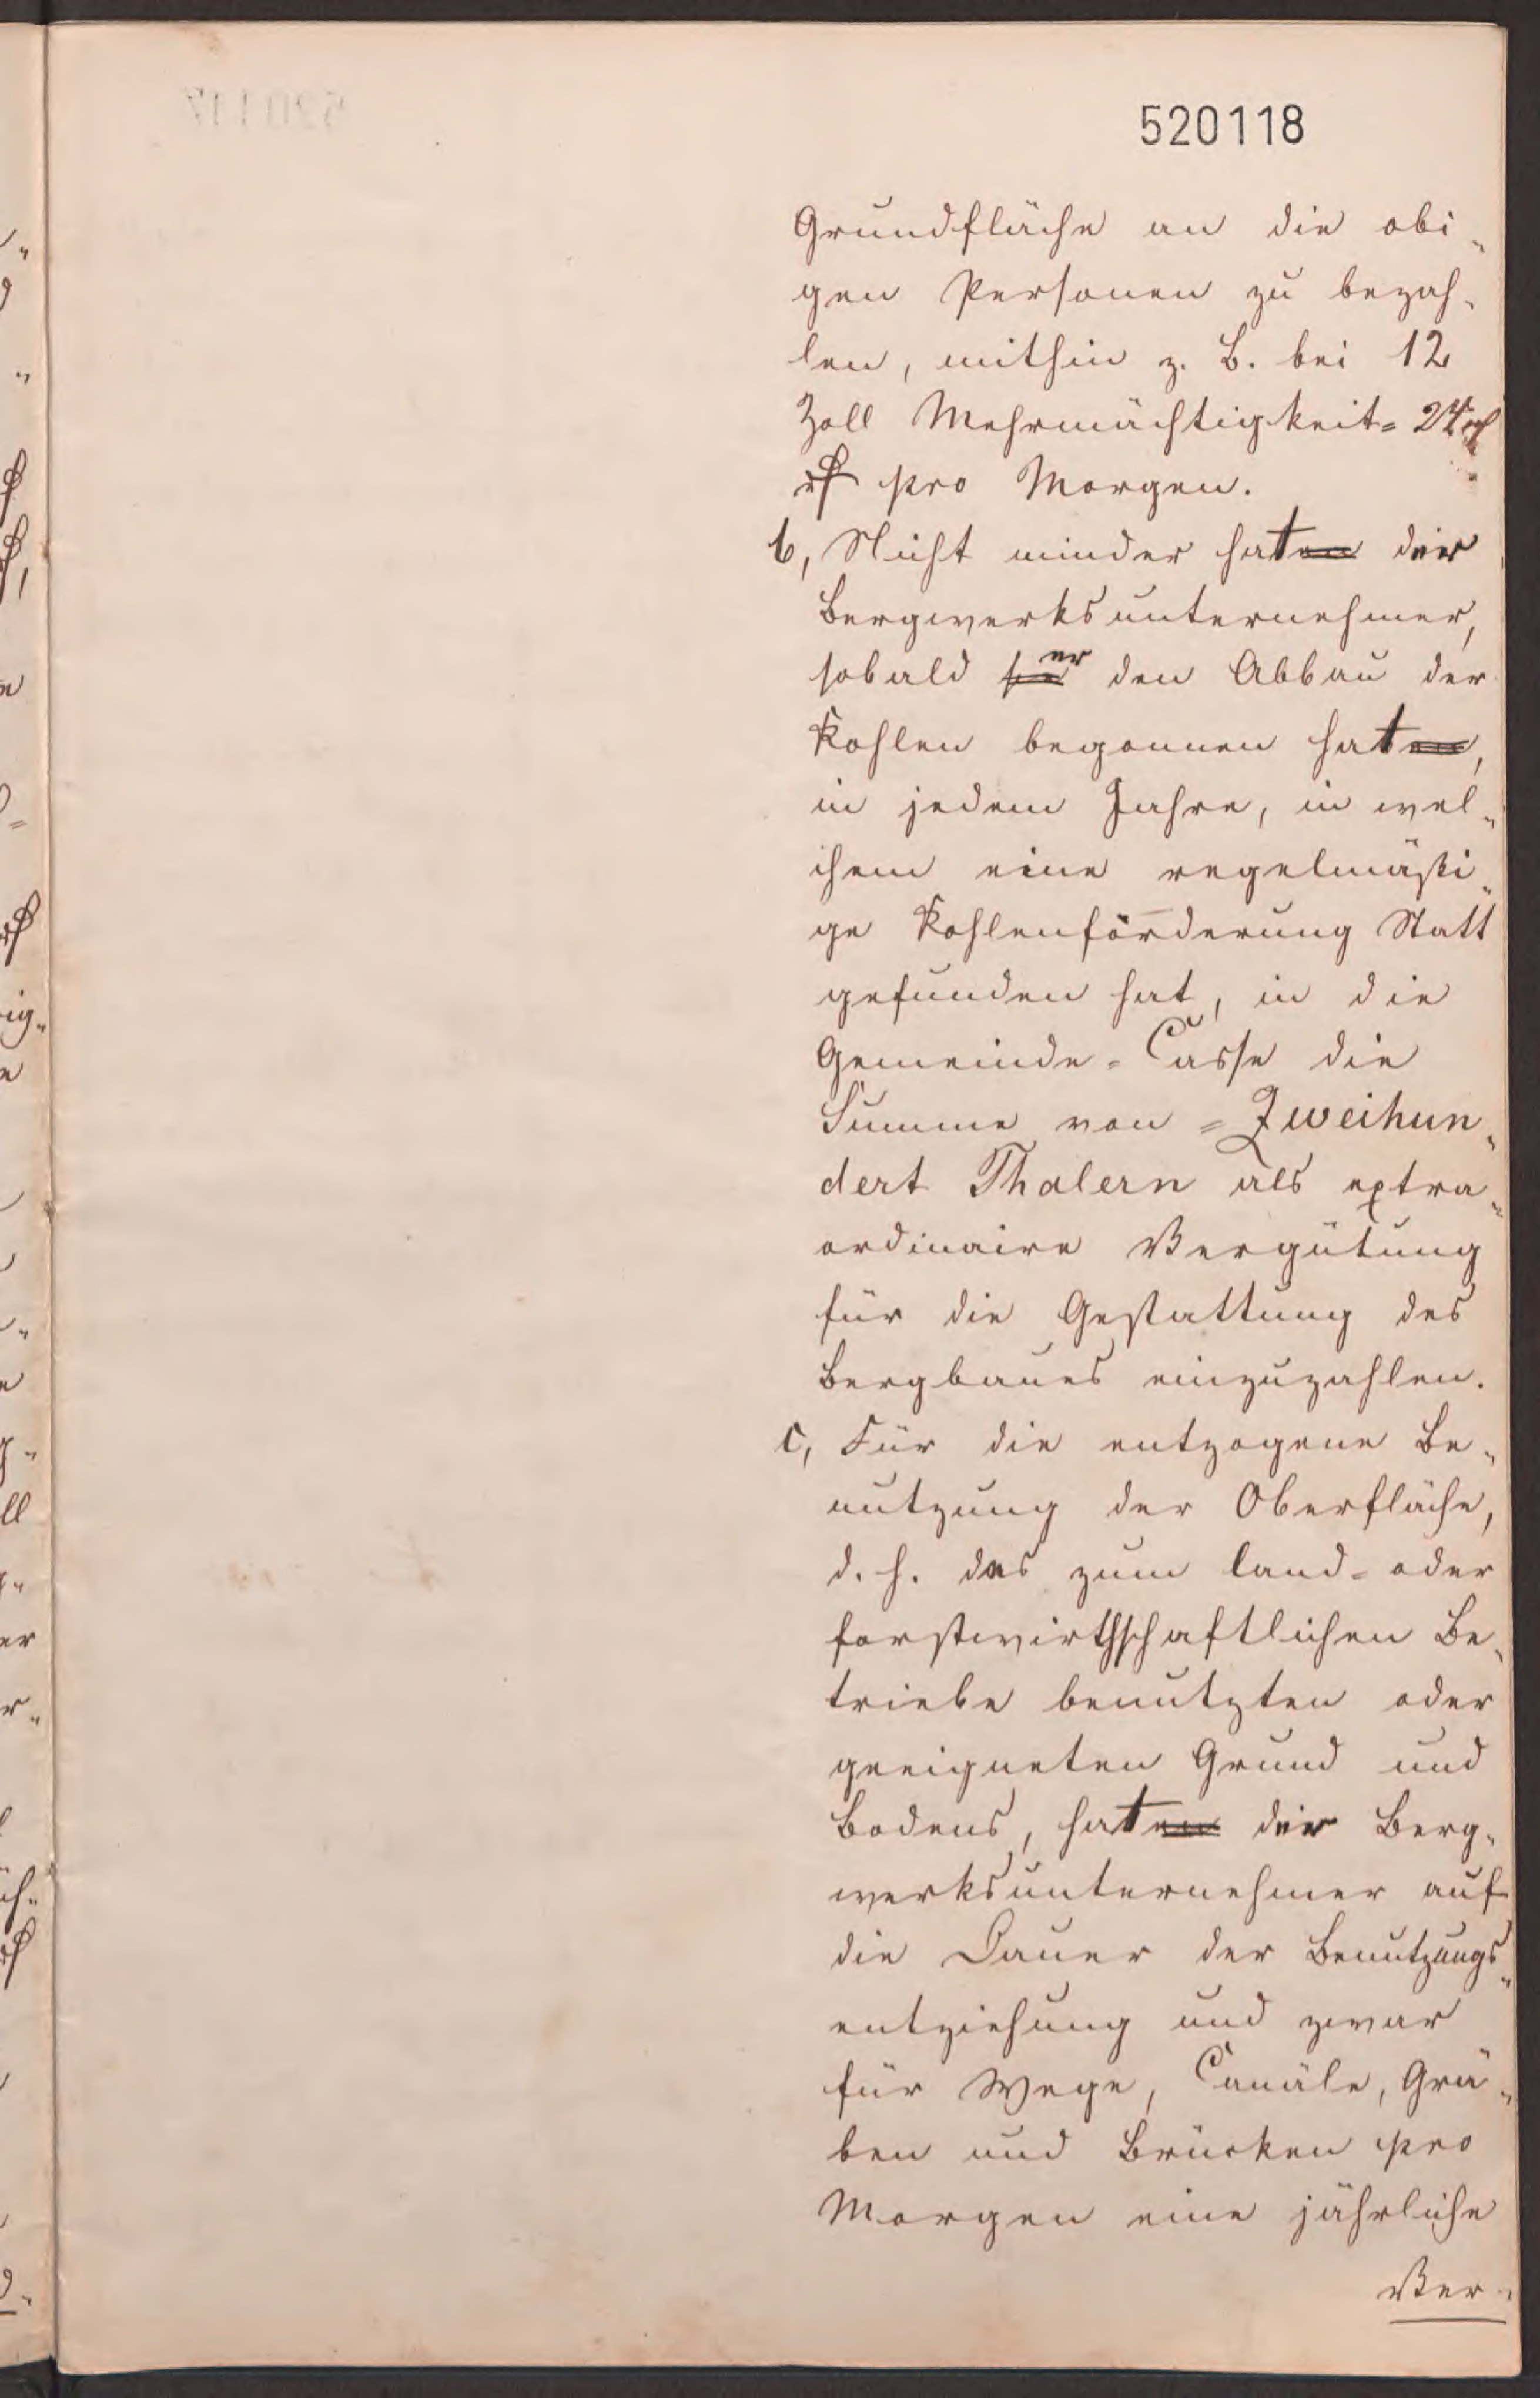 520118
Grundfläche an die obi-
gen Personen zu bezah-
len, mithin z. B. bei 12
Zoll Mehrmächtigkeit = 24 rf
rf pro Morgen.
b, Nicht minder haten der
Bergwerksunternehmer,
sobald sie er den Abbau der
Kohlen begonnen haten,
in jedem Jahre, in wel-
chem eine regelmäßi-
ge Kohlenförderung Statt
gefunden hat, in die
Gemeinde-Casse die
Summe von = Zweihun-
dert Thalern als extra-
ordinaire Vergütung
für die Gestattung des
Bergbaues einzuzahlen.
c, Für die entzogene Be-
nutzung der Oberfläche,
d. h. des zum land- oder
forstwirthschaftlichen Be-
triebe benutzten oder
geeigneten Grund und
Bodens, haten der Berg-
werksunternehmer auf
die Dauer der Benutzungs-
entziehung und zwar
für Wege, Canäle, Grä-
ben und Brücken pro
Morgen eine jährliche
Ver-